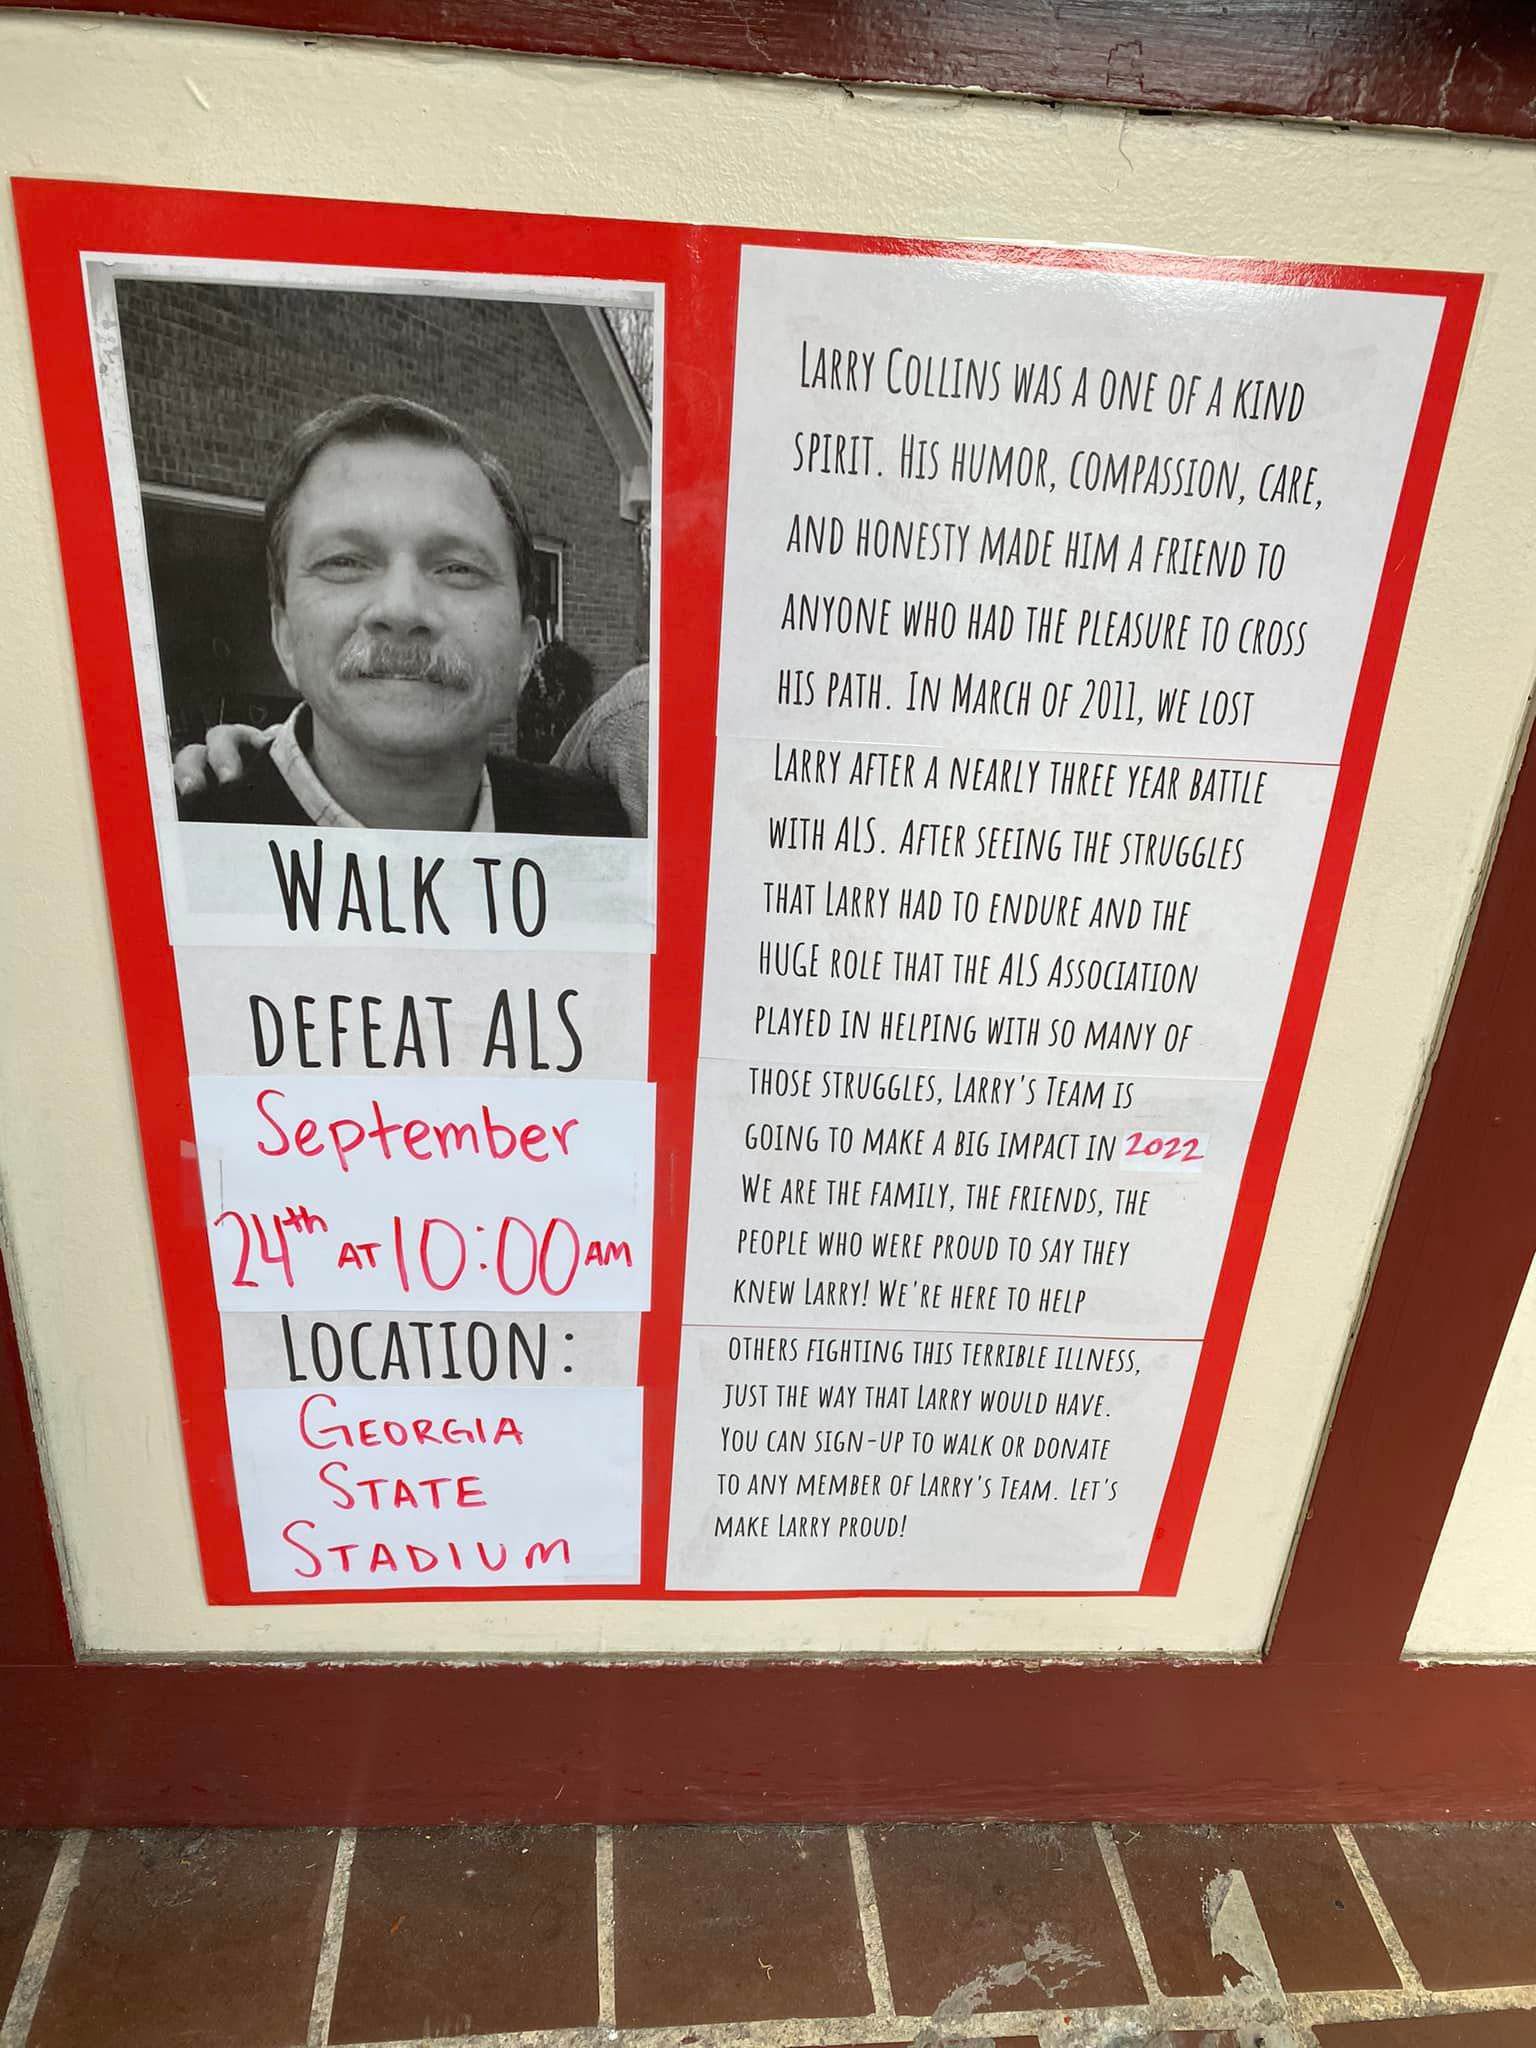 WALK TO
DEFEAT ALS
September
24th AT 10:00 AM
LOCATION:
GEORGIA
STATE
STADIUM
LARRY COLLINS WAS A ONE OF A KIND
SPIRIT. HIS HUMOR, COMPASSION, CARE,
AND HONESTY MADE HIM A FRIEND TO
ANYONE WHO HAD THE PLEASURE TO CROSS
HIS PATH. IN MARCH OF 2011, WE LOST
LARRY AFTER A NEARLY THREE YEAR BATTLE
WITH ALS. AFTER SEEING THE STRUGGLES
THAT LARRY HAD TO ENDURE AND THE
HUGE ROLE THAT THE ALS ASSOCIATION
PLAYED IN HELPING WITH SO MANY OF
THOSE STRUGGLES, LARRY'S TEAM IS
GOING TO MAKE A BIG IMPACT IN 2022
WE ARE THE FAMILY, THE FRIENDS, THE
PEOPLE WHO WERE PROUD TO SAY THEY
KNEW LARRY! WE'RE HERE TO HELP
OTHERS FIGHTING THIS TERRIBLE ILLNESS,
JUST THE WAY THAT LARRY WOULD HAVE.
YOU CAN SIGN-UP TO WALK OR DONATE
TO ANY MEMBER OF LARRY'S TEAM. LET'S
MAKE LARRY PROUD!